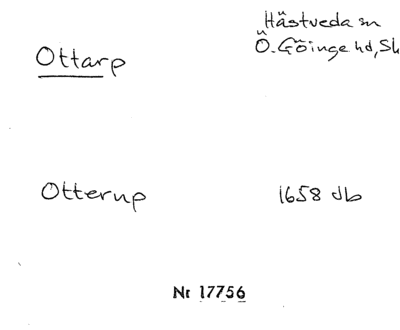 Ottarp
Hästveda sn
Ö. Göinge hd, Sk
Otterup
1658 db
Nr 17756